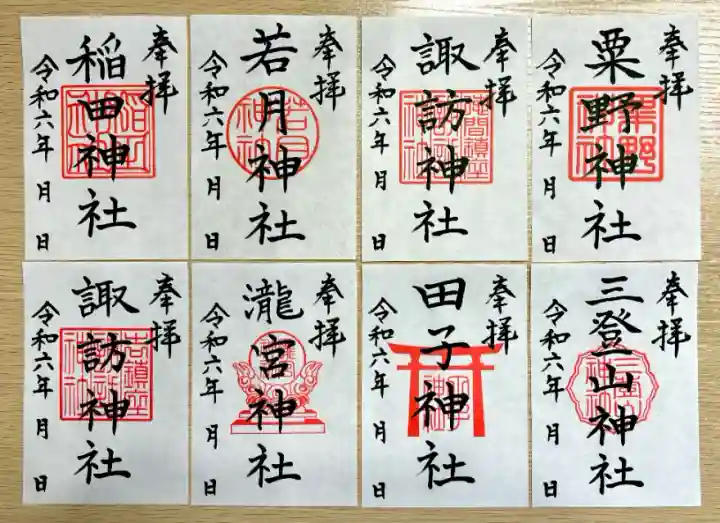 奉拝
稲田神社
令和六年 月 日
奉拝
若月神社
令和六年 月 日
奉拝
諏訪神社
令和六年 月 日
奉拝
粟野神社
令和六年 月 日
奉拝
諏訪神社
令和六年 月 日
奉拝
瀧宮神社
令和六年 月 日
奉拝
田子神社
令和六年 月 日
奉拝
三登山神社
令和六年 月 日